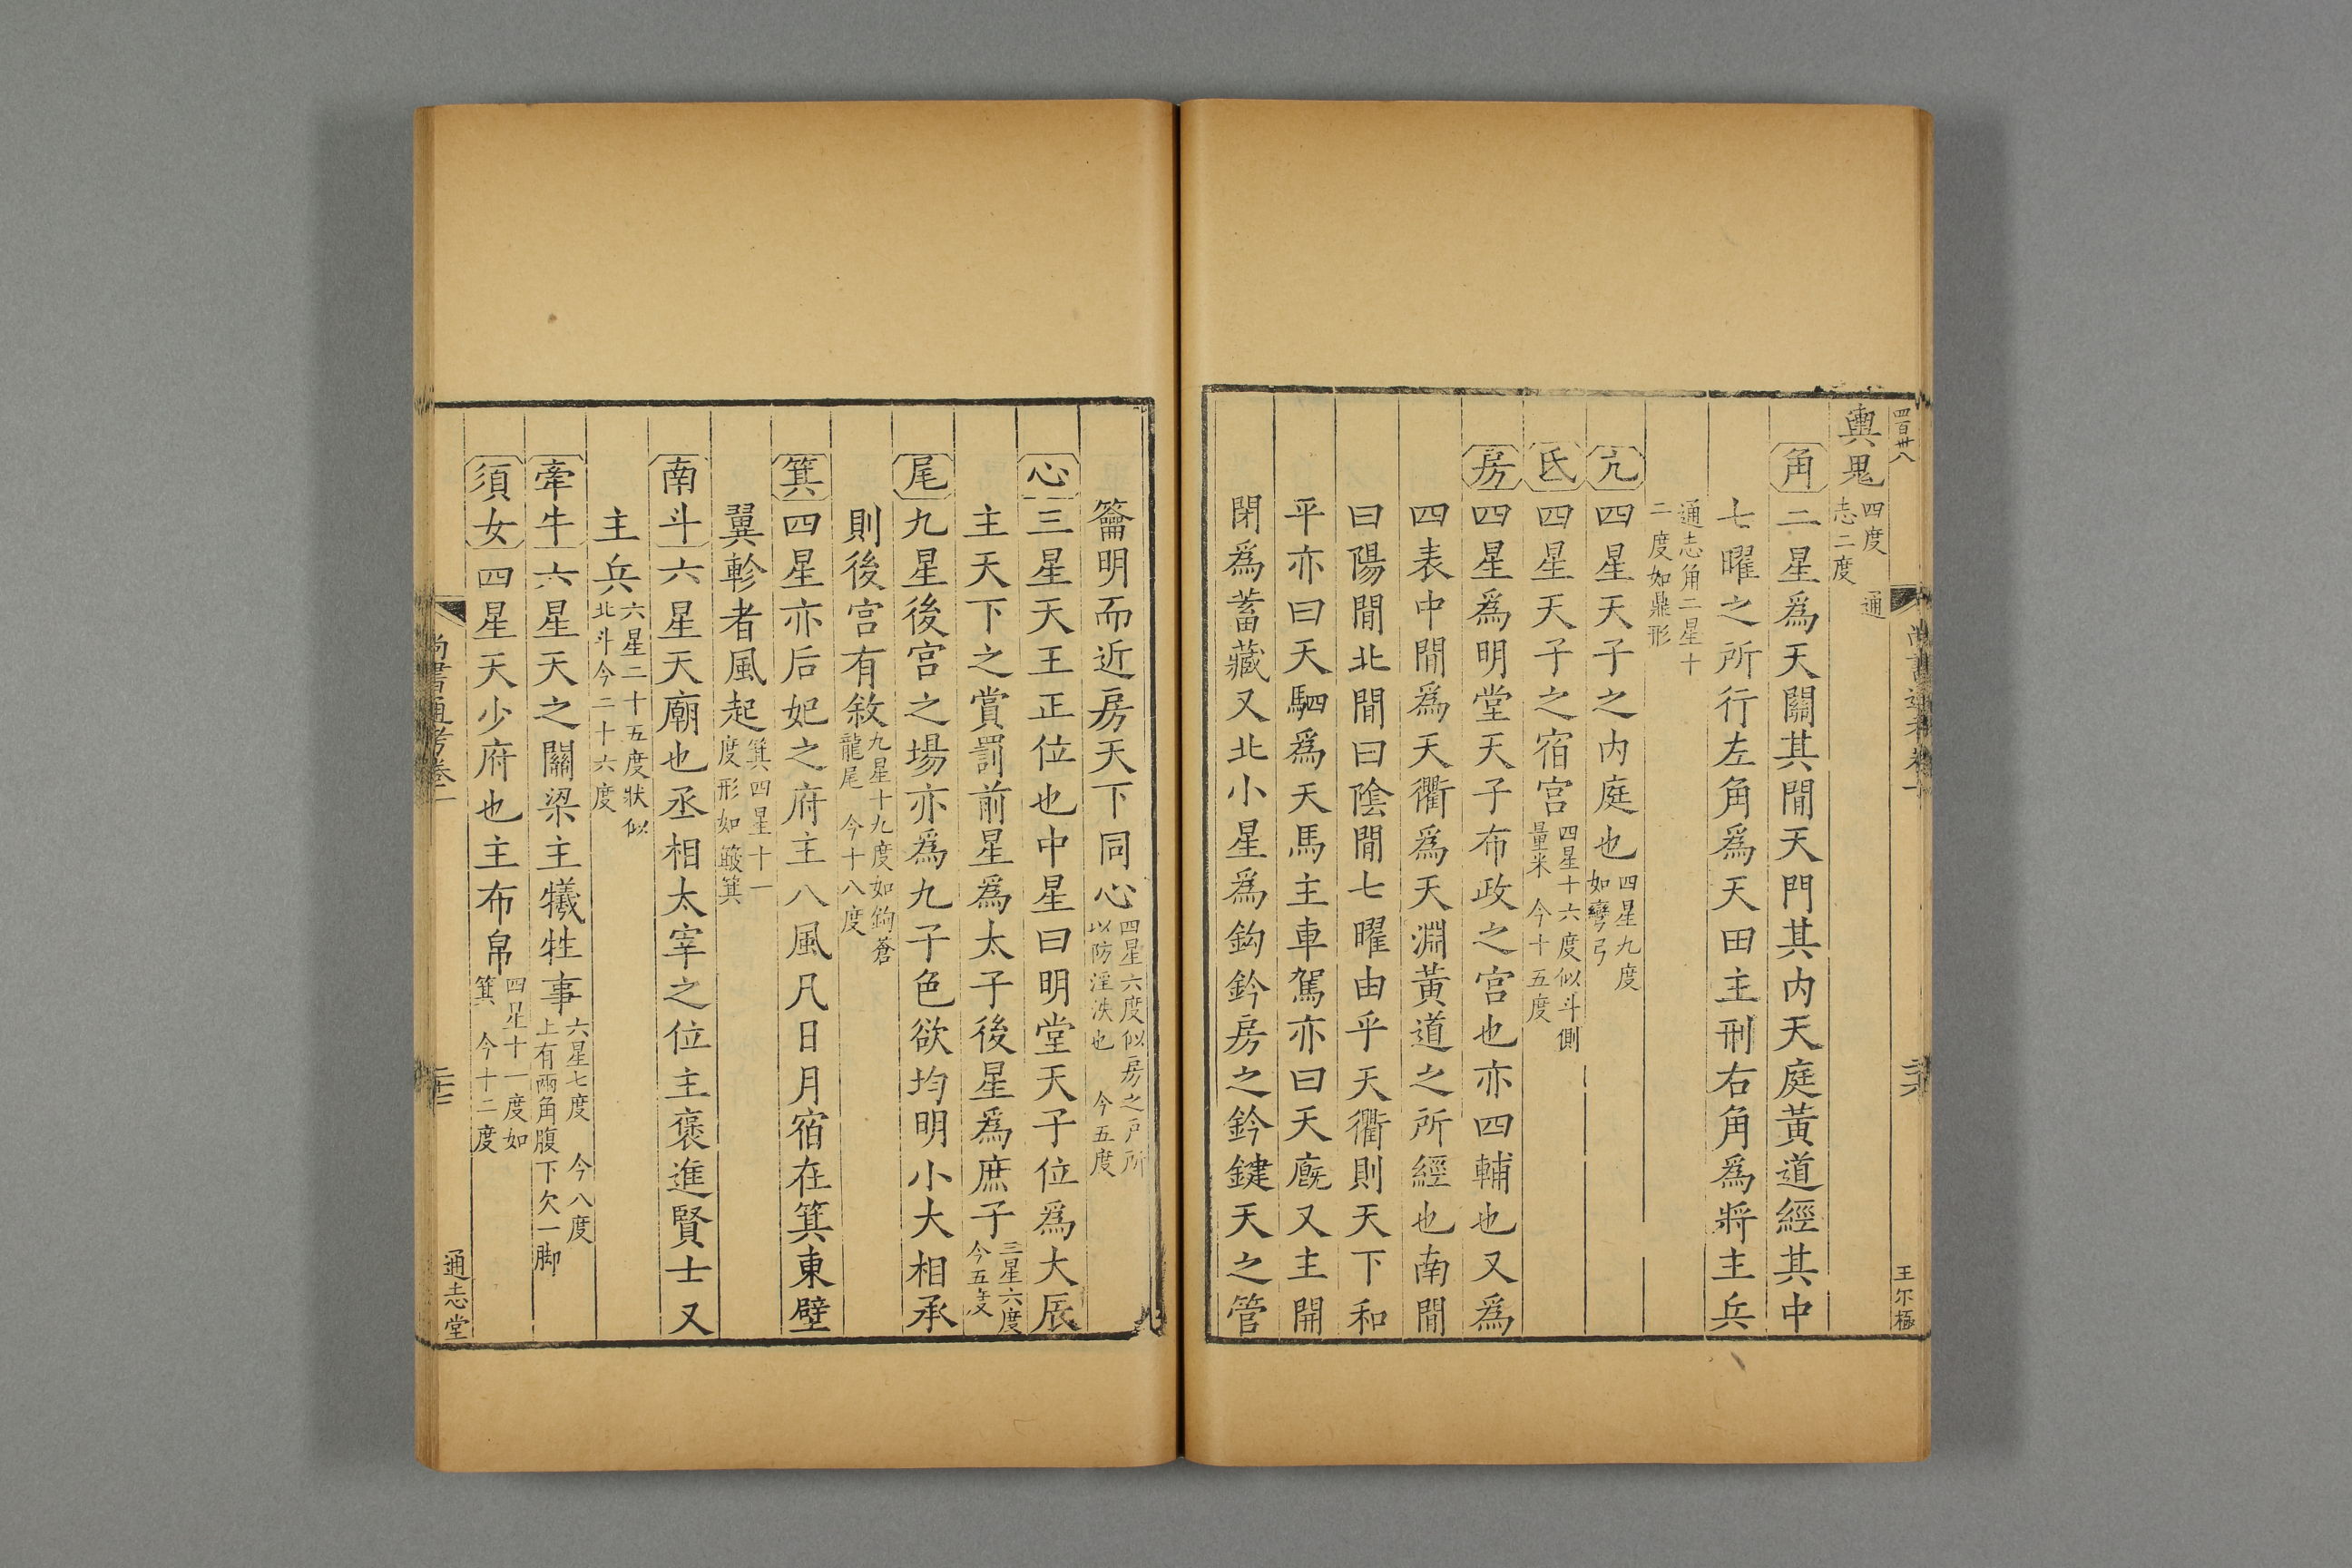 四百卅八
輿鬼四度 通志二度
角二星爲天關其閒天門其內天庭黃道經其中
七曜之所行左角爲天田主刑右角爲將主兵
通志角二星十二度如鼎形
亢四星天子之內庭也四星九度如彎弓
氐四星天子之宿宮四星十六度似斗側量米 今十五度
房四星爲明堂天子布政之宮也亦四輔也又爲
四表中閒爲天衢爲天淵黃道之所經也南閒
曰陽閒北閒曰陰閒七曜由乎天衢則天下和
平亦曰天駟爲天馬主車駕亦曰天廐又主開
閉爲蓄藏又北小星爲鈎鈐房之鈐鍵天之管
王尔極
籥明而近房天下同心四星六度似房之戸所以防淫泆也 今五度
心三星天王正位也中星曰明堂天子位爲大辰
主天下之賞罰前星爲太子後星爲庶子三星六度今五度
尾九星後宮之場亦爲九子色欲均明小大相承
則後宮有敘九星十九度如鉤蒼龍尾 今十八度
箕四星亦后妃之府主八風凡日月宿在箕東壁
翼軫者風起箕四星十一度形如簸箕
南斗六星天廟也丞相太宰之位主褒進賢士又
主兵六星二十五度狀似北斗今二十六度
牽牛六星天之關梁主犧牲事六星七度 今八度上有兩角腹下欠一脚
須女四星天少府也主布帛四星十一度如箕 今十二度
尚書通考卷二
通志堂